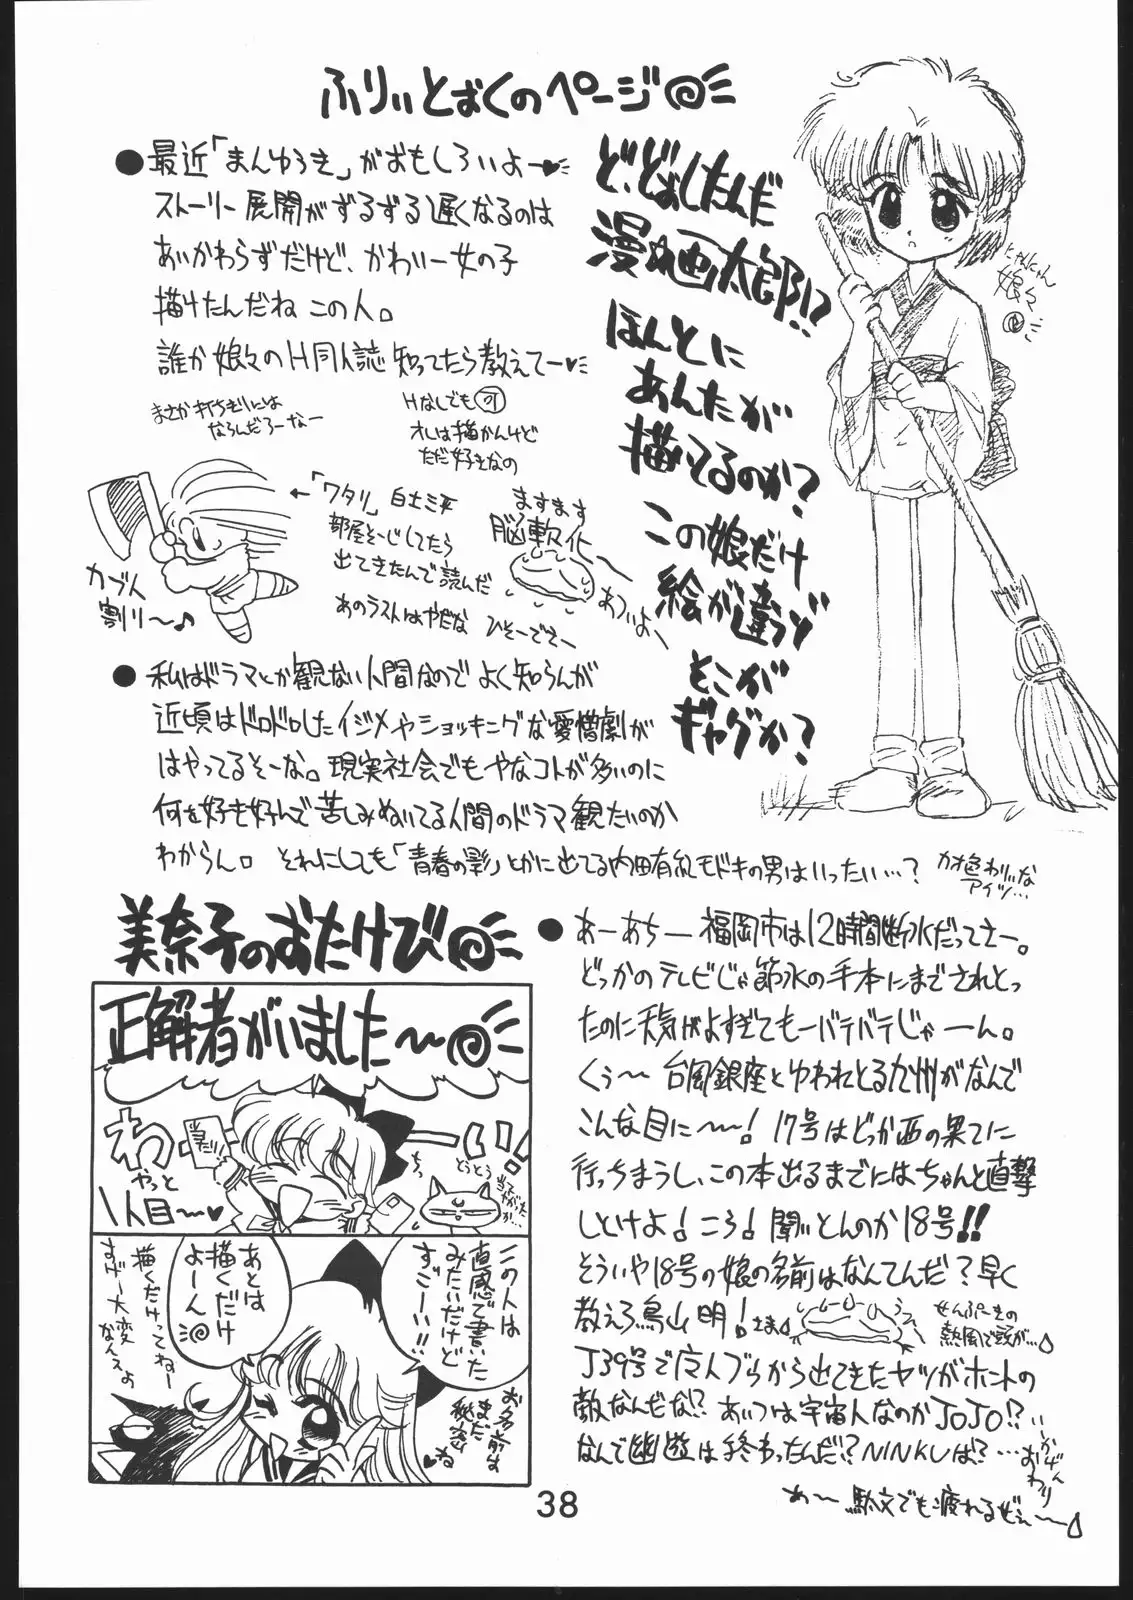 ふりぃとばくのページ
●最近「まんゆうき」がおもしろいよー
ストーリー展開がずるずる遅くなるのは
あいかわらずだけど、かわいー女の子
描けたんだねこの人。
誰か娘々のH同人誌知ってたら教えてー
まさか打ちぎりには
ならんだろーなー
Hなしでも可
オレは描かんけど
ただ好きなの
ど、どぉしたんだ
漫☆画太郎!?
ほんとに
あんたが
描いてるのか?
この娘だけ
絵が違うぞ
どこが
ギャグか?
にゃんにゃん
娘々
カブト
割り〜♪
←「ワタリ」白土三平
部屋そーじしてたら
出てきたんで読んだ
あのラストはやだな
ますます
脳軟化〜
あついよー
●私はドラマとか観ない人間なのでよく知らんが
近頃はドロドロしたイジメやショッキングな愛憎劇が
はやってるそーな。現実社会でもやなコトが多いのに
何を好き好んで苦しみぬいてる人間のドラマ観たいのか
わからん。それにしても「青春の影」とかに出てる内田有紀モドキの男はいったい…?
カオ色わりぃな
アイツ…
美奈子のおたけび
正解者がいました〜
わーい!
やっと
1人目〜♥
とうとう
この人は
直感で書いた
みたいだけど
すごーい!!
お名前は
まだ
秘密
ね
あとは
描くだけ
よーん
描くだけってねー
すげー大変
なんスよ
●あーあちー福岡市は12時間断水だってさー。
どっかのテレビじゃ節水の手本にまでされとっ
たのに天気がよすぎてもーバテバテじゃーん。
くぅ〜台風銀座とゆわれとる九州がなんで
こんな目に〜〜!17号はどっか西の果てに
行っちまうし、この本出るまでにはちゃんと直撃
しといけよ!ころ!聞いとんのか18号!!
そういや18号の娘の名前はなんてんだ?早く
教えろ鳥山明!さま
せんぷーきの
熱風で頭が…
J39号で広人ブらから出てきたヤツがホントの
敵なんだな!?あいつは宇宙人なのかJOJO!?
なんで幽遊は終わったんだ!?NINKUは?…
いいかげん
おわり
あ〜駄文でも疲れるぜぇ〜
38